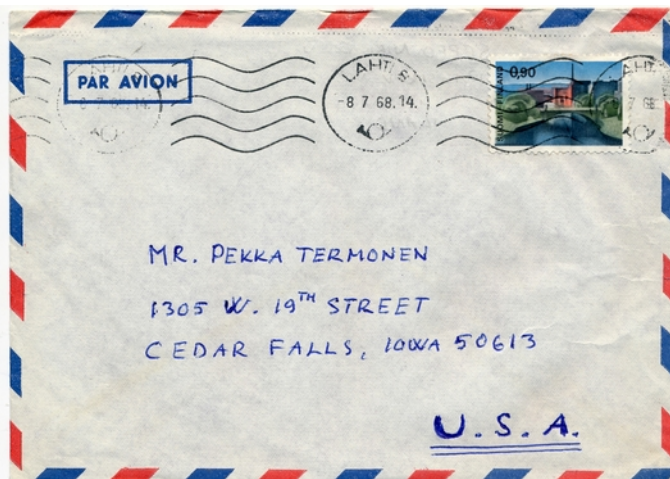 PAR AVION
LAHTI 6
-8 7 68.14.
0,90
SUOMI FINLAND
MR. PEKKA TERMONEN
1305 W. 19TH STREET
CEDAR FALLS, IOWA 50613
U.S.A.